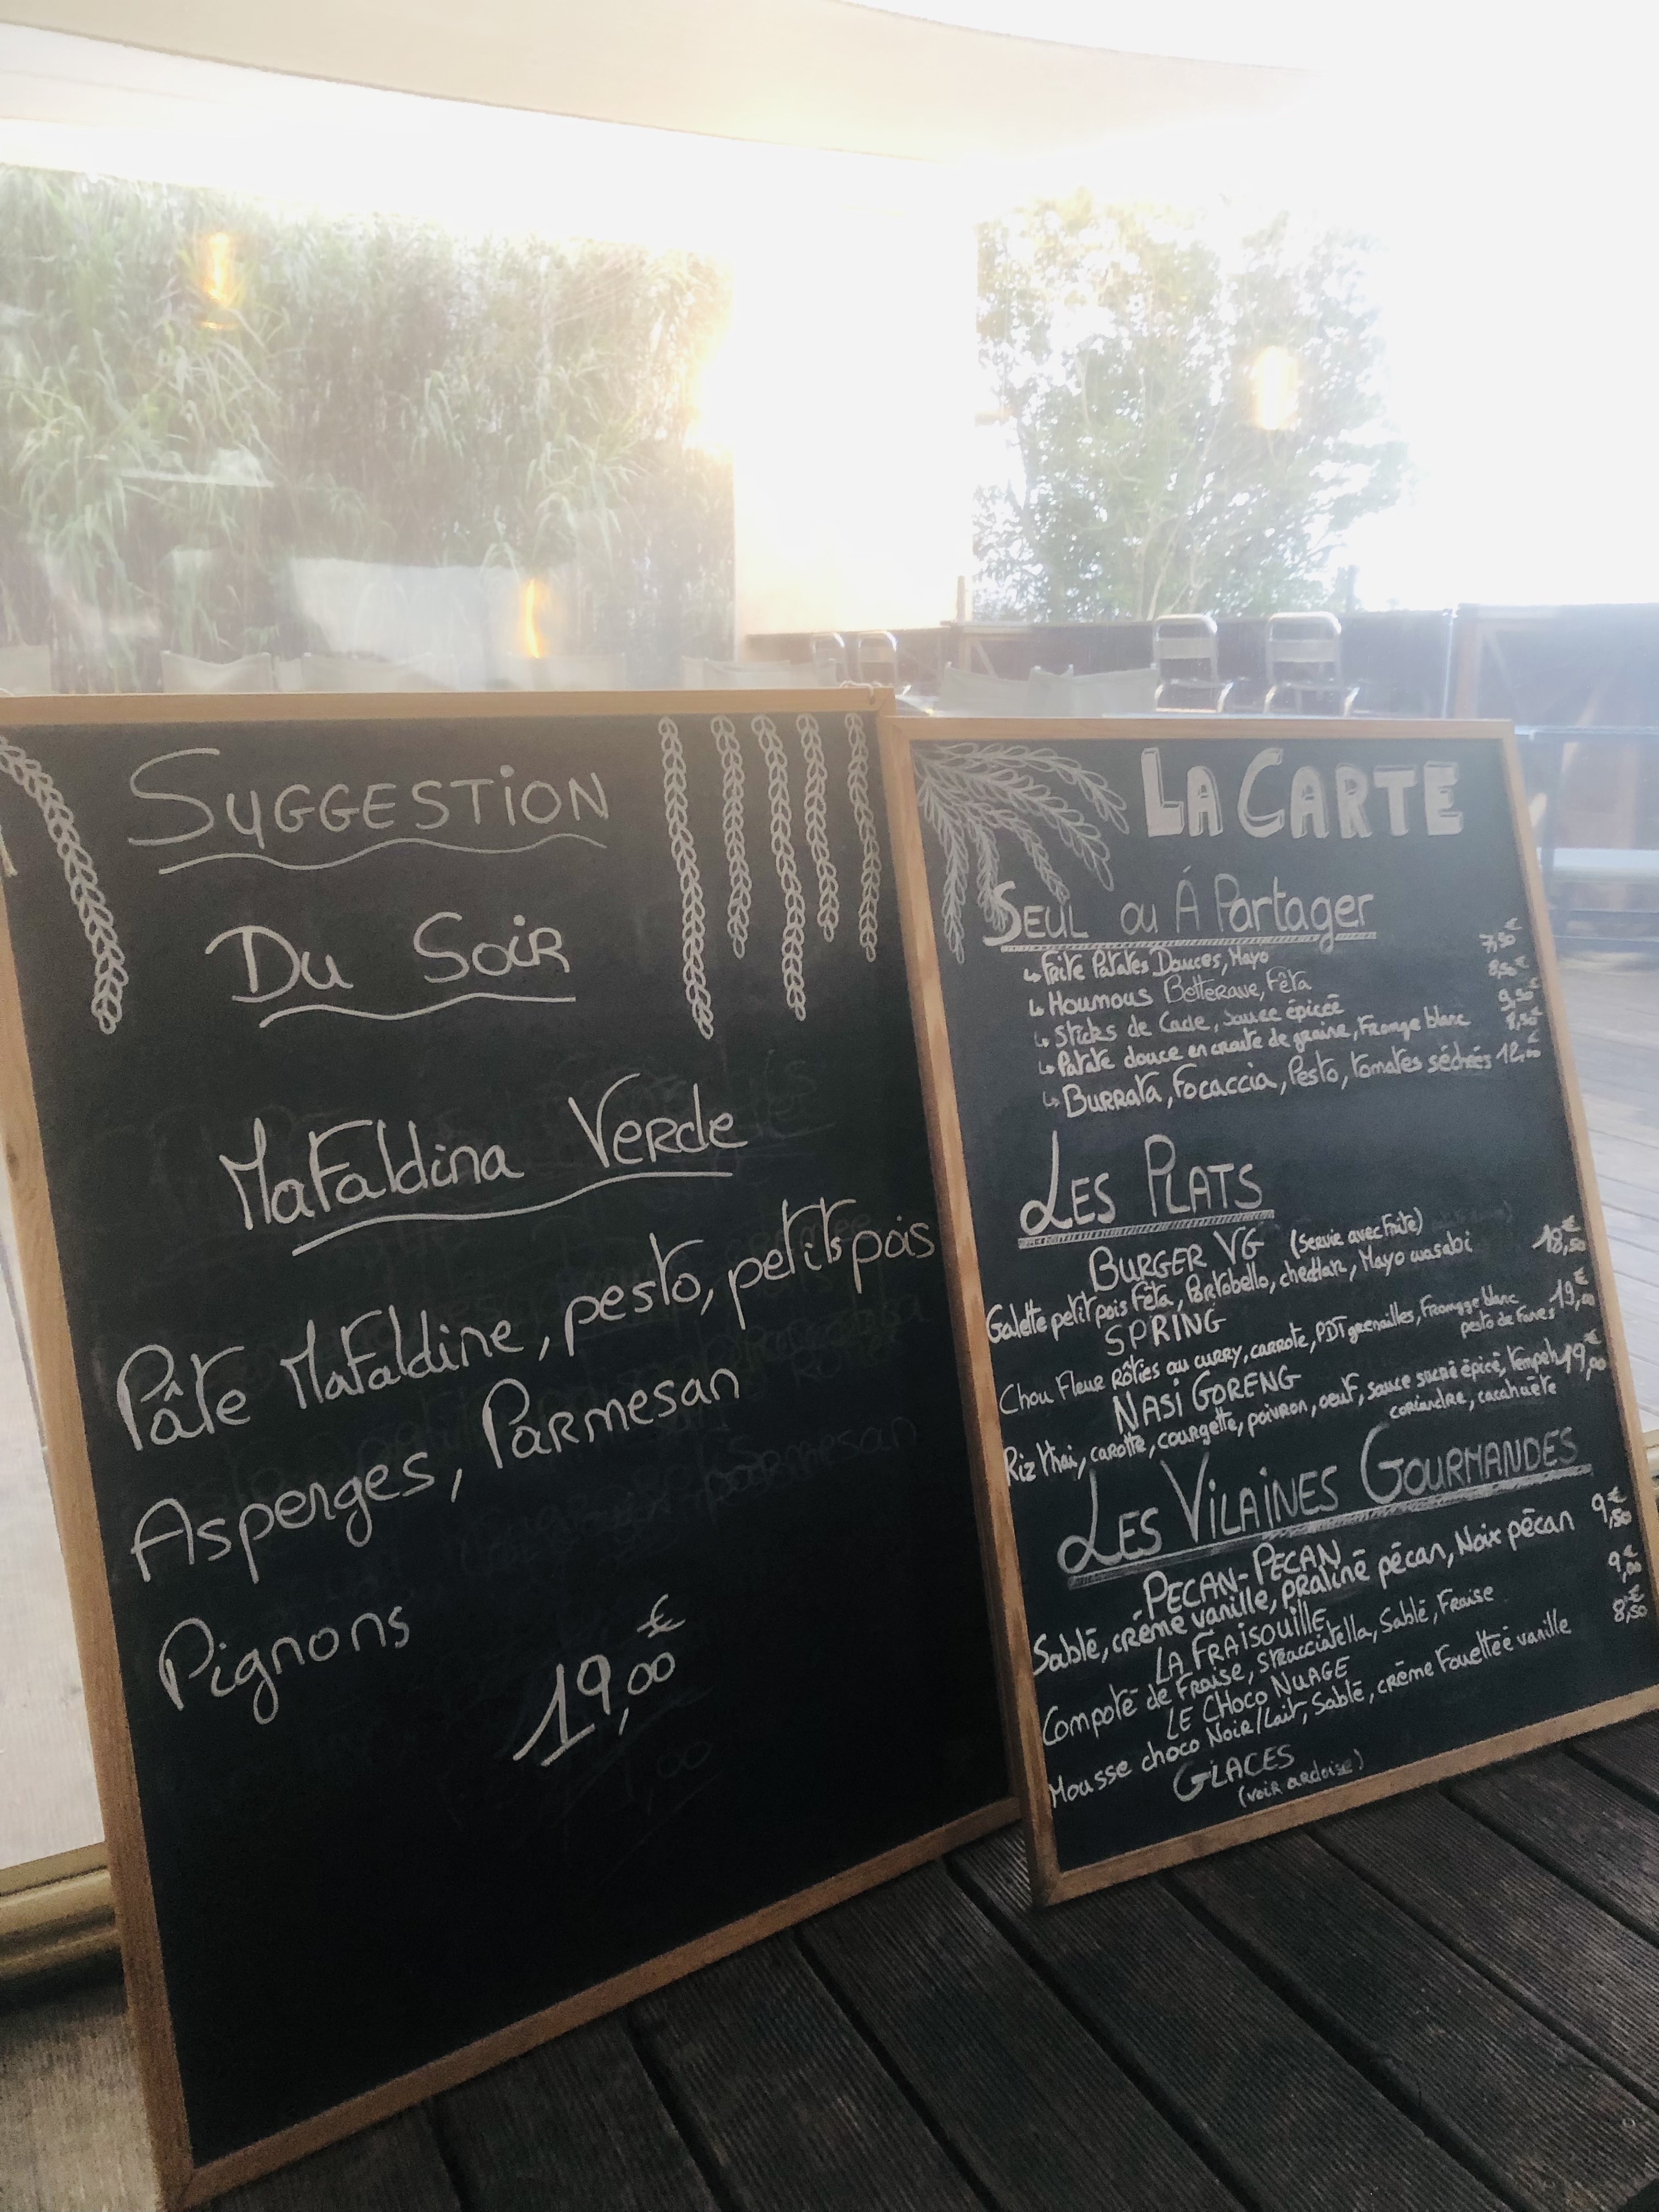 SuGGESTiON
Du SoiR
MaFaldina VeRde
Pâte MaFaldine, pesto, petits pois
Asperges, PaRmesan
Pignons
19,00€
LA CARTE
SEUL ou Á Partager
↳ Frite Patates Douces, Mayo 7,50€
↳ Houmous Betterave, Fêta 8,50€
↳ Sticks de Cade, sauce épicée 9,50€
↳ Patate douce en croute de graine, Fromge blanc 8,50€
↳ BuRRata, Focaccia, Pesto, tomates séchées 12,00€
LES PLATS
BURGER VG (Servie avec Frite) 18,50€
Galette petit pois Fêta, Portobello, cheddar, Mayo wasabi
SPRING 19,00€
Chou Fleur Rôties au curry, carrote, PDT grenailles, Fromgge blanc
pesto de Fanes
NASi GORENG 19,00€
Riz thai, carotte, courgette, poivron, oeuf, sauce sucré épicé, Tempeh
coriandre, cacahuète
LES ViLAiNES GOURMANDES
PECAN-PECAN 9,50€
Sablé, crème vanille, praliné pécan, Noix pécan
LA FRAiSOUiLLE 9,00€
Compoté de Fraise, stracciatella, Sablé, Fraise
LE CHOCO NUAGE 8,50€
Mousse choco Noir/Lait, Sablé, crème Fouetteé vanille
GLACES
(voir ardoise)